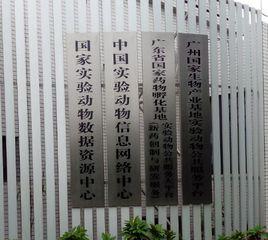 国家实验动物数据资源中心
中国实验动物信息网络中心
广东省国家药物孵化基地
实验动物公共服务平台
广州国家生物产业基地实验动物公共服务平台